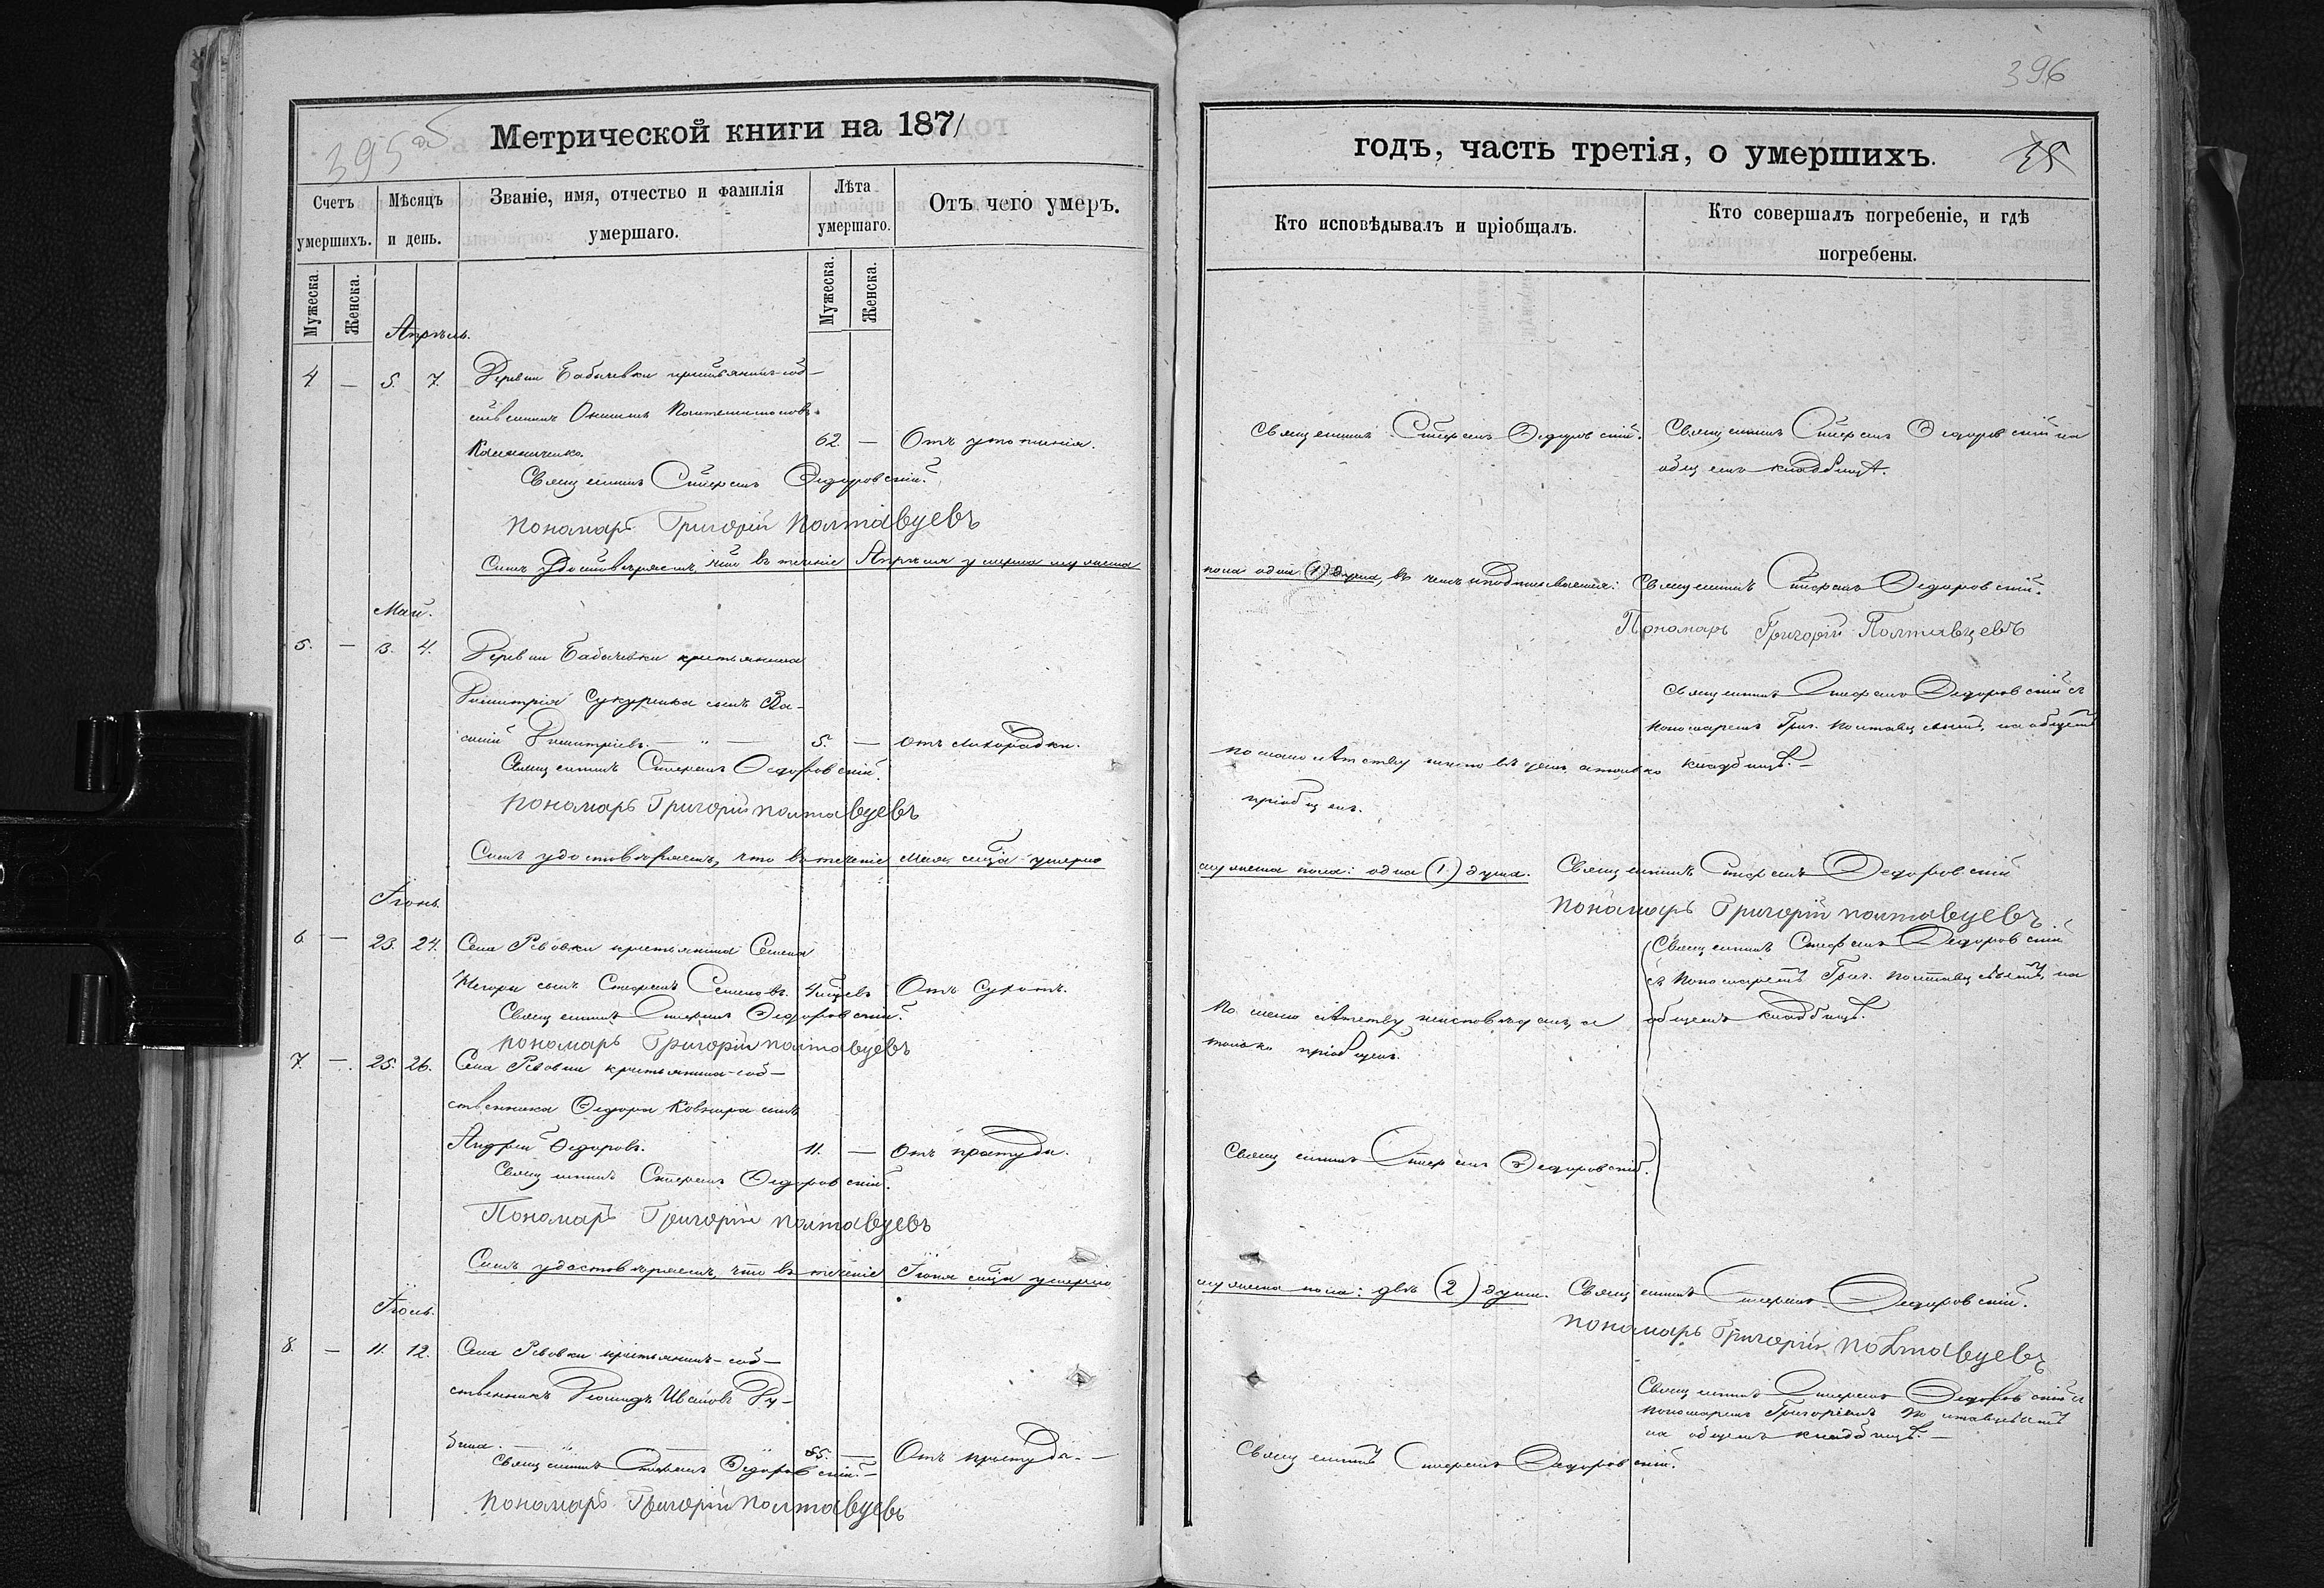 395 об
Метрической книги на 1871
Счетъ умершихъ.
Мѣсяцъ и день.
Званіе, имя, отчество и фамилія умершаго.
Лѣта умершаго.
Отъ чего умеръ.
Мужеска.
Женска.
Мужеска.
Женска.
Апрѣль.
4 — 5. 7. Деревни Бабичевки крестьянинъ-соб-
ственникъ Онисимъ
62. — Отъ утопленія.
Священникъ Стефанъ Федоровскій.
Пономарь Григорій Полтавцевъ
Симъ удостовѣряемъ, что въ теченіе Апрѣля умерла мужеска
Май.
5. — 3. 4. Деревни Бабичевки крестьянина
Димитрія сынъ Ва-
силій Димитріевъ. — „ — 5. — отъ лихорадки.
Священникъ Стефанъ Федоровскій.
Пономарь Григорій Полтавцевъ
Симъ удостовѣряемъ, что въ теченіе Мая мѣсяца умерло
Іюнь.
6 — 23. 24. Села Ревовки крестьянина Семена
сынъ Стефанъ Семеновъ. 4 Отъ сухотъ.
Священникъ Стефанъ Федоровскій.
Пономарь Григорій Полтавцевъ
7. — 25. 26. Села Ревовки крестьянина-соб-
ственника Федора Ковнира сынъ
Андрей Федоровъ. 11. — Отъ простуды.
Священникъ Стефанъ Федоровскій.
Пономарь Григорій Полтавцевъ
Симъ удостовѣряемъ, что въ теченіе Іюня мѣсяца умерло
Іюль.
8. — 11. 12. Села Ревовки крестьянинъ-соб-
ственникъ Леонидъ Ивановъ
— „ — 85. — Отъ простуды. —
Священникъ Стефанъ Федоровскій. —
Пономарь Григорій Полтавцевъ
396
годъ, часть третія, о умершихъ.
Кто исповѣдывалъ и пріобщалъ.
Кто совершалъ погребеніе, и гдѣ
погребены.
Священникъ Стефанъ Федоровскій.
Священникъ Стефанъ Федоровскій на
общемъ кладбищѣ.
пола одна (1) душа, въ чемъ и подписываемся: Священникъ Стефанъ Федоровскій.
Пономарь Григорій Полтавцевъ
Священникъ Стефанъ Федоровскій съ
пономаремъ Григ. Полтавцевымъ, на общемъ
кладбищѣ. —
По малолѣтству неисповѣданъ, а только
пріобщенъ.
мужеска пола: одна (1) душа. Священникъ Стефанъ Федоровскій
Пономарь Григорій Полтавцевъ
Священникъ Стефанъ Федоровскій
съ пономаремъ Григ. Полтавцевымъ, на
общемъ кладбищѣ.
По малолѣтству неисповѣданъ, а
только пріобщенъ.
Священникъ Стефанъ Федоровскій.
мужеска пола: двѣ (2) души. Священникъ Стефанъ Федоровскій.
Пономарь Григорій Полтавцевъ
Священникъ Стефанъ Федоровскій съ
пономаремъ Григоріемъ Полтавцевымъ
на общемъ кладбищѣ. —
Священникъ Стефанъ Федоровскій.